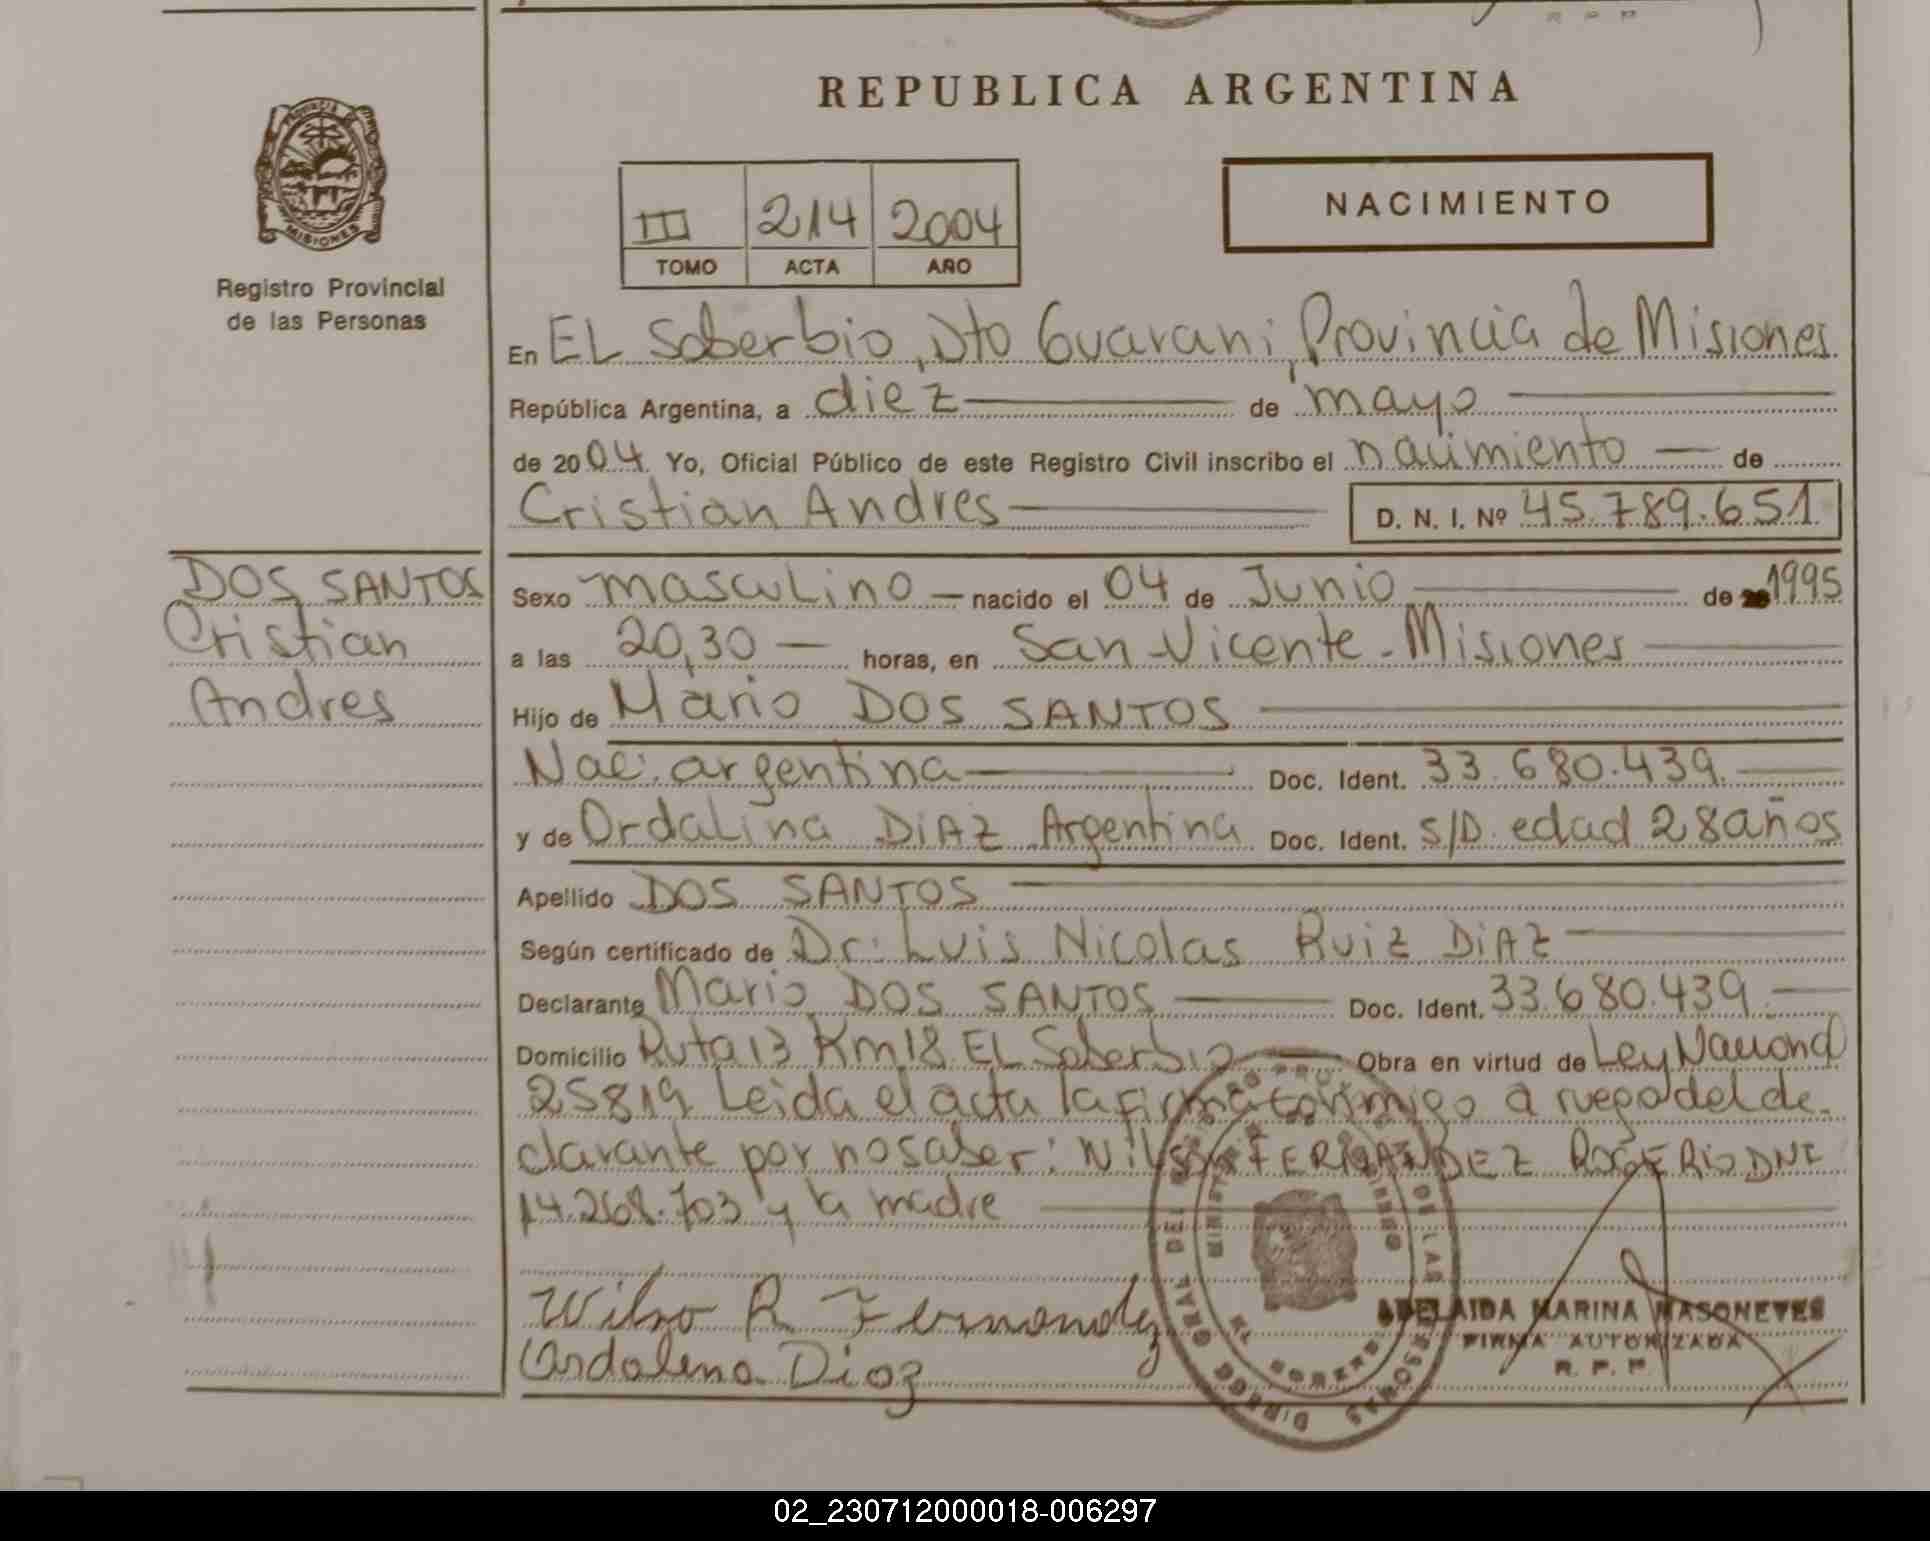 REPUBLICA ARGENTINA
PROVINCIA
MISIONES
Registro Provincial
de las Personas
III 214 2004
TOMO ACTA AÑO
NACIMIENTO
En EL Soberbio, Dto Guarani, Provincia de Misiones
República Argentina, a diez de mayo
de 2004 Yo, Oficial Público de este Registro Civil inscribo el nacimiento de
Cristian Andres D. N. I. Nº 45.789.651
DOS SANTOS
Cristian
Andres
Sexo masculino nacido el 04 de Junio de 1995
a las 20,30 horas, en San Vicente - Misiones
Hijo de Mario DOS SANTOS
Nac. argentina Doc. Ident. 33.680.439
y de OrdaLina DiAZ Argentina Doc. Ident. S/D. edad 28 años
Apellido DOS SANTOS
Según certificado de Dr: Luis Nicolas Ruiz DiAZ
Declarante Mario DOS SANTOS Doc. Ident. 33.680.439
Domicilio Ruta 13 Km 18 EL Soberbio Obra en virtud de Ley Nacional
25819 Leida el acta la firma conmigo a ruego del de-
clarante por no saber: Wilson FERNANDEZ ROGERIO DNI
14.268.703 y la madre
Wilso R Fernandez
Ordalina Diaz
ADELAIDA MARINA MASONEVES
FIRMA AUTORIZADA
R. P. P.
02_230712000018-006297